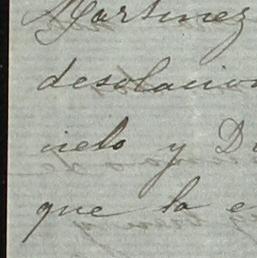 Martinez
desolacion
cielo y D
que la e